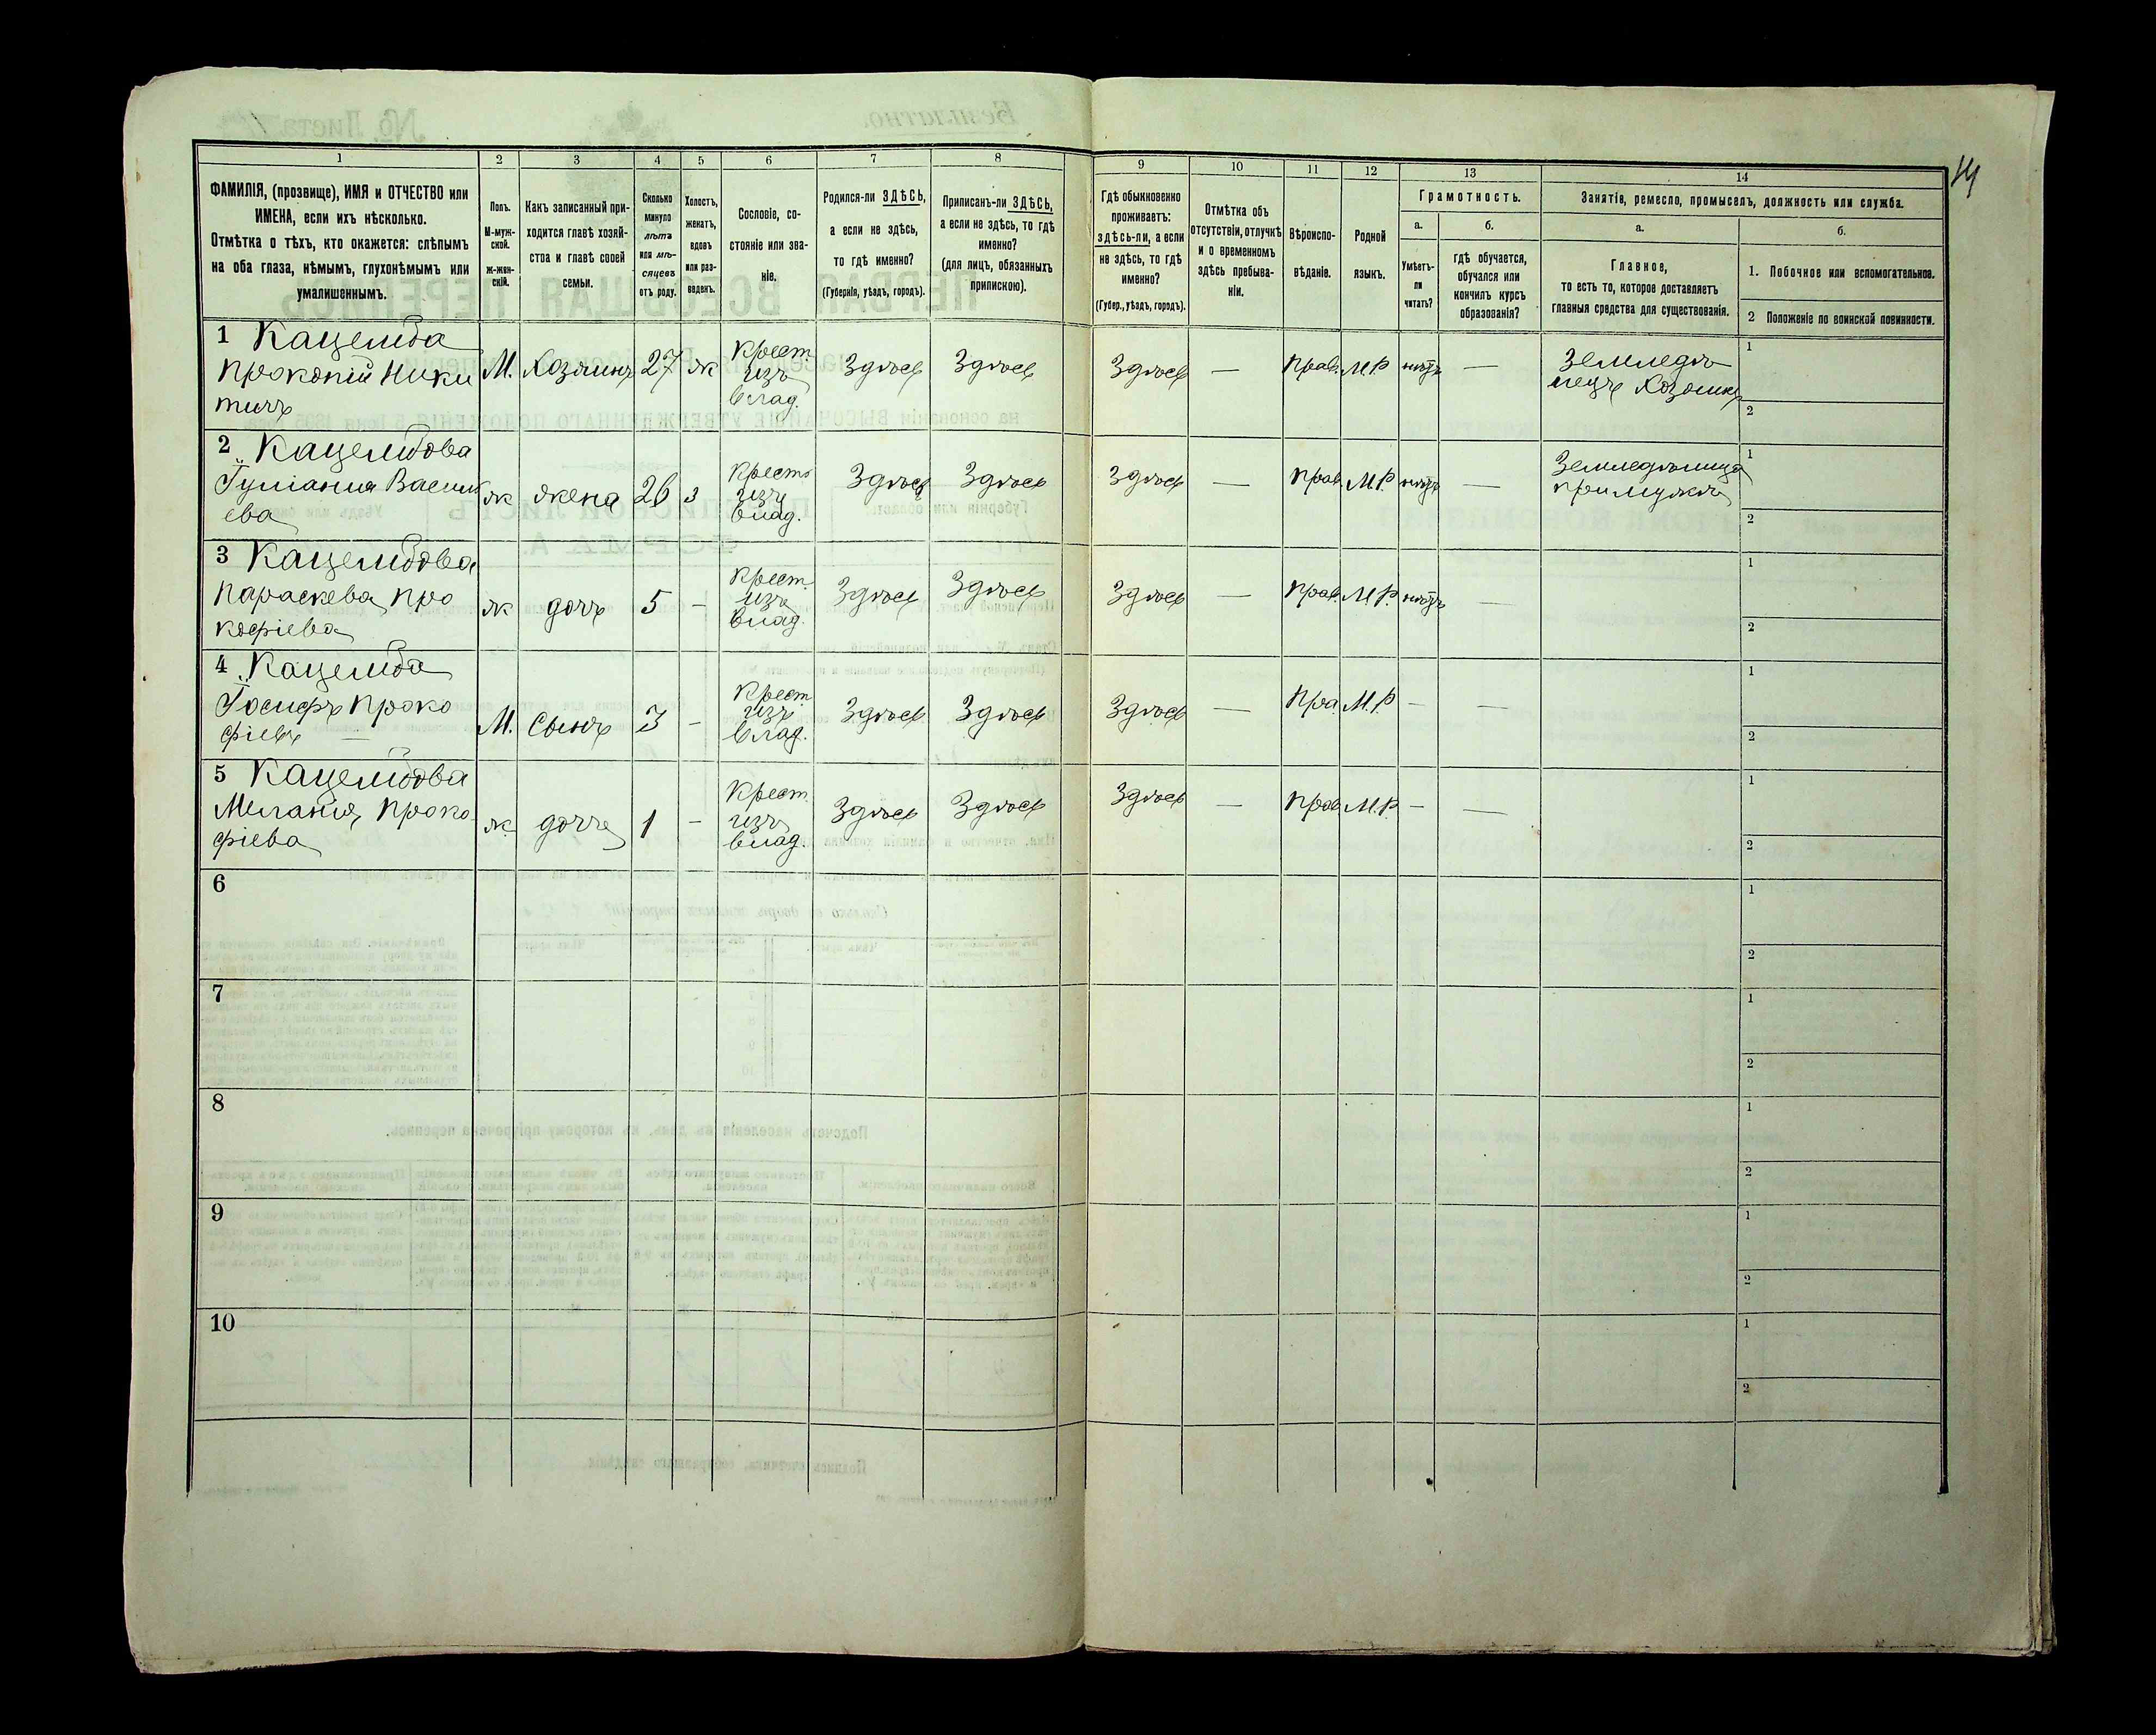 14
1
2
3
4
5
6
7
8
9
10
11
12
13
14
ФАМИЛІЯ, (прозвище), ИМЯ и ОТЧЕСТВО или
ИМЕНА, если ихъ нѣсколько.
Отмѣтка о тѣхъ, кто окажется: слѣпымъ
на оба глаза, нѣмымъ, глухонѣмымъ или
умалишеннымъ.
Полъ.
М-муж-
ской.
ж-жен-
скій.
Какъ записанный при-
ходится главѣ хозяй-
ства и главѣ своей
семьи.
Сколько
минуло
лѣтъ
или мѣ-
сяцевъ
отъ роду.
Холостъ,
женатъ,
вдовъ
или раз-
веденъ.
Сословіе, со-
стояніе или зва-
ніе.
Родился-ли ЗДѢСЬ,
а если не здѣсь,
то гдѣ именно?
(Губернія, уѣздъ, городъ).
Приписанъ-ли ЗДѢСЬ,
а если не здѣсь, то гдѣ
именно?
(для лицъ, обязанныхъ
припискою).
Гдѣ обыкновенно
проживаетъ:
здѣсь-ли, а если
не здѣсь, то гдѣ
именно?
(Губер., уѣздъ, городъ).
Отмѣтка объ
отсутствіи, отлучкѣ
и о временномъ
здѣсь пребыва-
ніи.
Вѣроиспо-
вѣданіе.
Родной
языкъ.
Грамотность.
а.
Умѣетъ-
ли
читать?
б.
гдѣ обучается,
обучался или
кончилъ курсъ
образованія?
Занятіе, ремесло, промыселъ, должность или служба.
а.
Главное,
то есть то, которое доставляетъ
главныя средства для существованія.
б.
1. Побочное или вспомогательное.
2 Положеніе по воинской повинности.
1 Кацемба
Прокопій Ники
тичъ
М. Хозяинъ 27 ж Крест.
изъ
влад.
Здѣсь Здѣсь Здѣсь — Прав. М.Р. нѣтъ —
Земледѣ
лецъ Хозяинъ
1
2
2 Кацембова
Іуліанія Василь
ева
ж жена 26 з Крестъ
изъ
влад.
Здѣсь Здѣсь Здѣсь — Прав. М.Р. нѣтъ —
Земледѣлица
при мужѣ
1
2
3 Кацембова
Параскева Про
кофіева
ж дочь 5 — Крест.
изъ
влад.
Здѣсь Здѣсь Здѣсь — Прав. М.Р. нѣтъ —
1
2
4 Кацемба
Іосифъ Проко
фіевъ —
М. Сынъ 3 — Крест.
изъ
влад.
Здѣсь Здѣсь Здѣсь — Пра. М.Р — —
1
2
5 Кацембова
Меланія Проко
фіева
ж дочь 1 — Крест.
изъ
влад.
Здѣсь Здѣсь Здѣсь — Прав. М.Р. — —
1
2
6
1
2
7
1
2
8
1
2
9
1
2
10
1
2